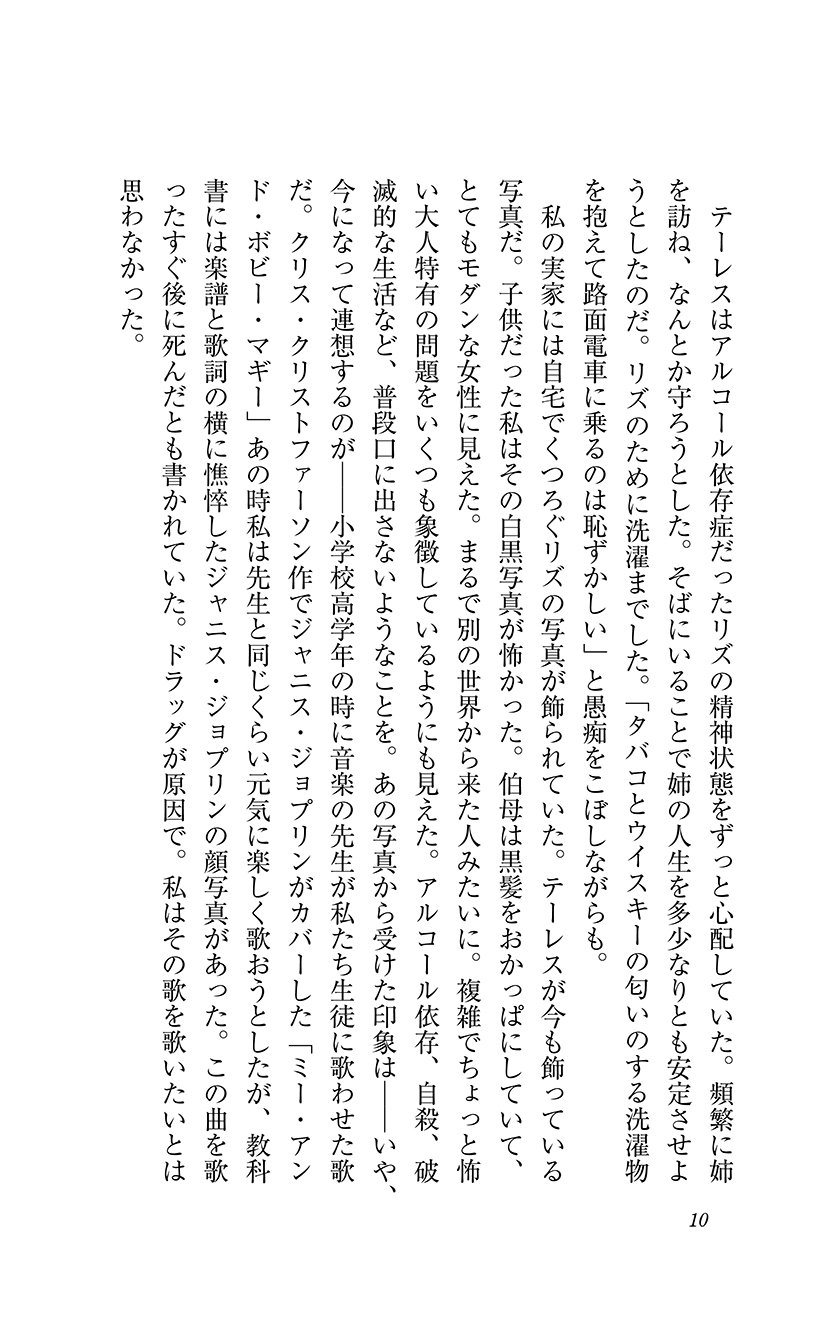 テーレスはアルコール依存症だったリズの精神状態をずっと心配していた。頻繁に姉
を訪ね、なんとか守ろうとした。そばにいることで姉の人生を多少なりとも安定させよ
うとしたのだ。リズのために洗濯までした。「タバコとウイスキーの匂いのする洗濯物
を抱えて路面電車に乗るのは恥ずかしい」と愚痴をこぼしながらも。
私の実家には自宅でくつろぐリズの写真が飾られていた。テーレスが今も飾っている
写真だ。子供だった私はその白黒写真が怖かった。伯母は黒髪をおかっぱにしていて、
とてもモダンな女性に見えた。まるで別の世界から来た人みたいに。複雑でちょっと怖
い大人特有の問題をいくつも象徴しているようにも見えた。アルコール依存、自殺、破
滅的な生活など、普段口に出さないようなことを。あの写真から受けた印象は――いや、
今になって連想するのが――小学校高学年の時に音楽の先生が私たち生徒に歌わせた歌
だ。クリス・クリストファーソン作でジャニス・ジョプリンがカバーした「ミー・アン
ド・ボビー・マギー」あの時私は先生と同じくらい元気に楽しく歌おうとしたが、教科
書には楽譜と歌詞の横に憔悴したジャニス・ジョプリンの顔写真があった。この曲を歌
ったすぐ後に死んだとも書かれていた。ドラッグが原因で。私はその歌を歌いたいとは
思わなかった。
10